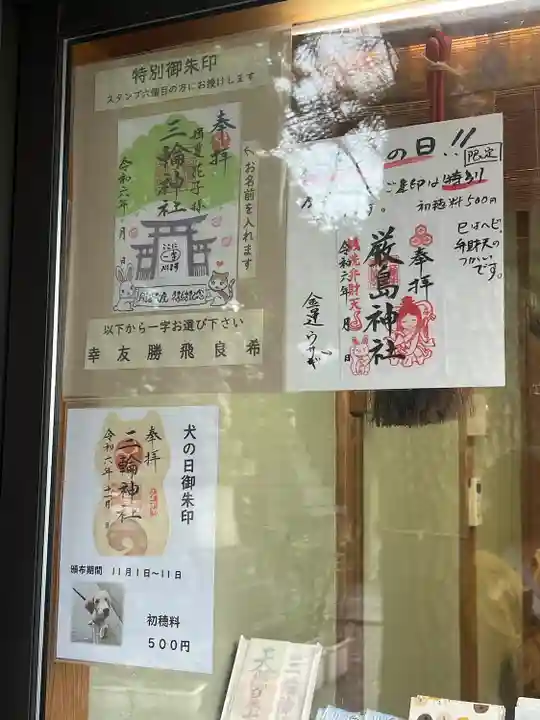 特別御朱印
スタンプ六個目の方にお授けします
奉拝
三輪神社
令和六年 月 日
↖お名前を入れます
以下から一字お選び下さい
幸 友 勝 飛 良 希
の日!!
限定
ご朱印は特別
初穂料500円
巳はヘビ。
弁財天の
つかい
です。
奉拝
厳島神社
令和六年 月 日
犬の日御朱印
奉拝
三輪神社
令和六年十一月 日
頒布期間 11月1日~11日
初穂料
500円